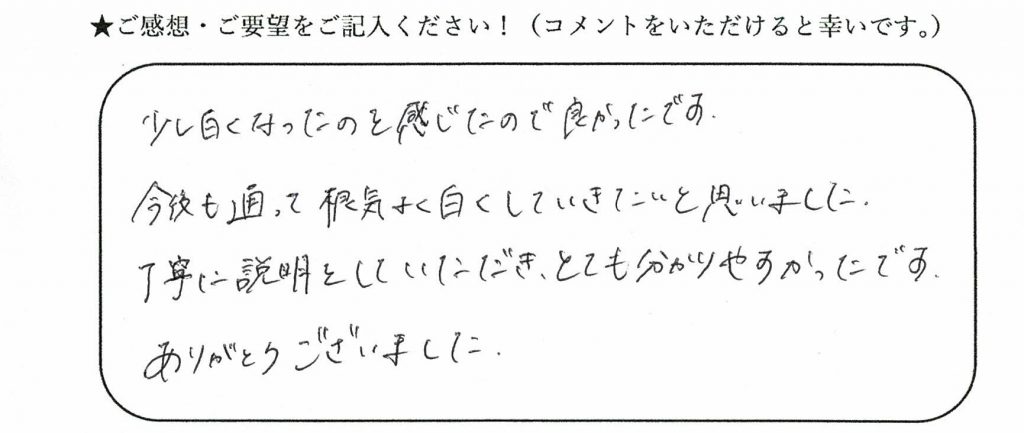 ★ご感想・ご要望をご記入ください！（コメントをいただけると幸いです。）
少し白くなったのを感じたので良かったです.
今後も通って根気よく白くしていきたいと思いました.
丁寧に説明をしていただき、とても分かりやすかったです.
ありがとうございました.